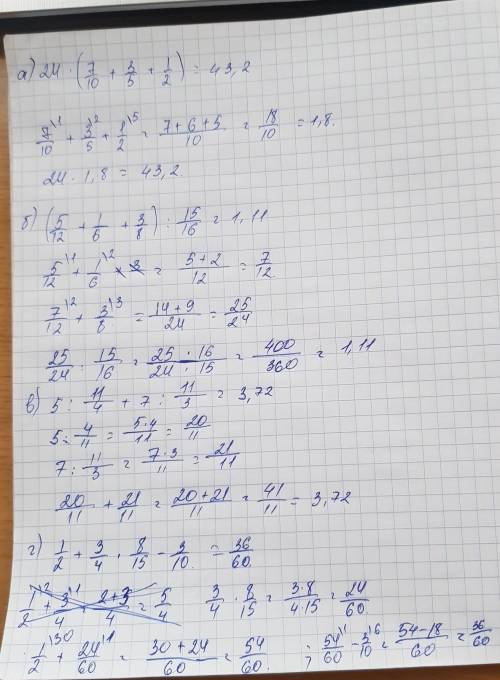 а) 24 · (7/10 + 3/5 + 1/2) = 43,2
7/10 \1 + 3/5 \2 + 1/2 \5 = (7+6+5)/10 = 18/10 = 1,8.
24 · 1,8 = 43,2.
б) (5/12 + 1/6 + 3/8) : 15/16 = 1,11
5/12 \1 + 1/6 \2 = (5+2)/12 = 7/12.
7/12 \2 + 3/8 \3 = (14+9)/24 = 25/24
25/24 : 15/16 = (25 · 16)/(24 · 15) = 400/360 = 1,11
в) 5 : 11/4 + 7 : 11/3 = 3,72
5 : 4/11 = (5·4)/11 = 20/11
7 : 11/3 = (7·3)/11 = 21/11
20/11 + 21/11 = (20+21)/11 = 41/11 = 3,72
г) 1/2 + 3/4 · 8/15 - 3/10 = 36/60.
1/2 \2 + 3/4 \1 = (2+3)/4 = 5/4 3/4 · 8/15 = (3·8)/(4·15) = 24/60
1/2 \30 + 24/60 \1 = (30+24)/60 = 54/60. ; 54/60 \1 - 3/10 \6 = (54-18)/60 = 36/60